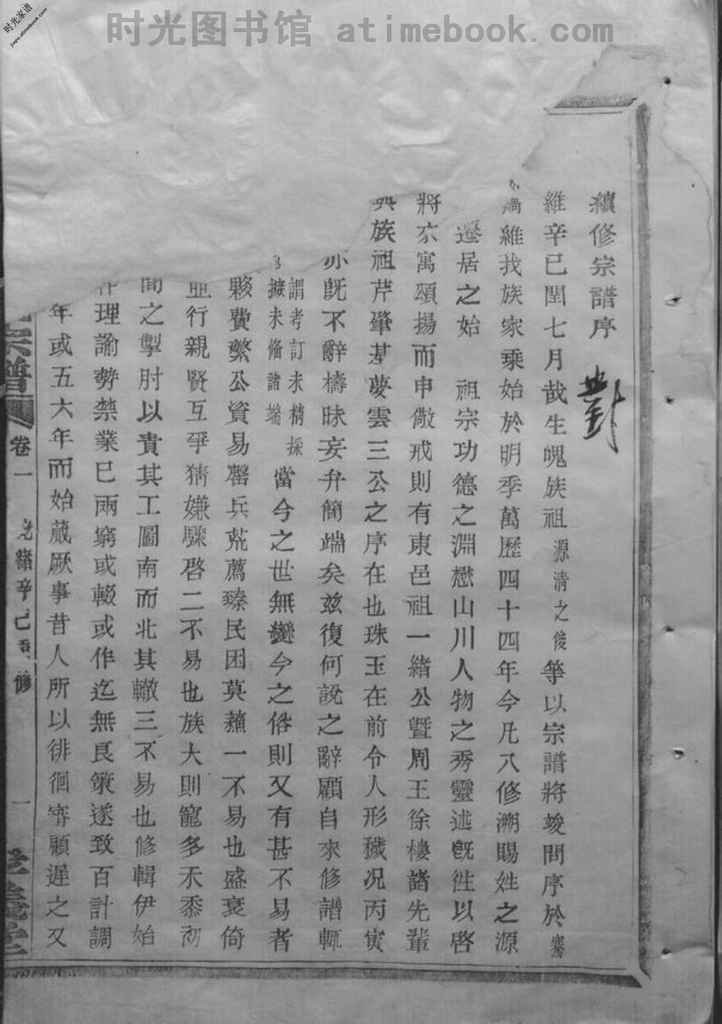 时光图书馆 atimebook.com
时光家谱
續修宗譜序
維辛巳閏七月哉生魄族祖源清之俊等以宗譜將竣問序於騫
維我族家乗始於明季萬歷四十四年今凡八修溯賜姓之源
遷居之始 祖宗功德之淵懋山川人物之秀靈述旣徃以啓
將來寓頌揚而申儆戒則有東邑祖一緒公曁周王徐樓諸先輩
與族祖芹肇夢雲三公之序在也珠玉在前令人形穢况丙寅
亦旣不辭檮昧妄弁簡端矣兹復何說之辭顧自來修譜輒
謂考訂未精採
據未備諸端
當今之世無變今之俗則又有甚不易者
夥費繁公資易罄兵荒薦臻民困莫蘇一不易也盛衰倚
並行親賢互爭猜嫌驟啓二不易也族大則寵多禾黍
間之掣肘以責其工圖南而北其轍三不易也修輯伊始
理諭勢禁業已兩窮或輟或作迄無良策遂致百計調
年或五六年而始蕆厥事昔人所以徘徊審顧遲之又
宗譜
卷一
光緒辛巳重修
一
堂